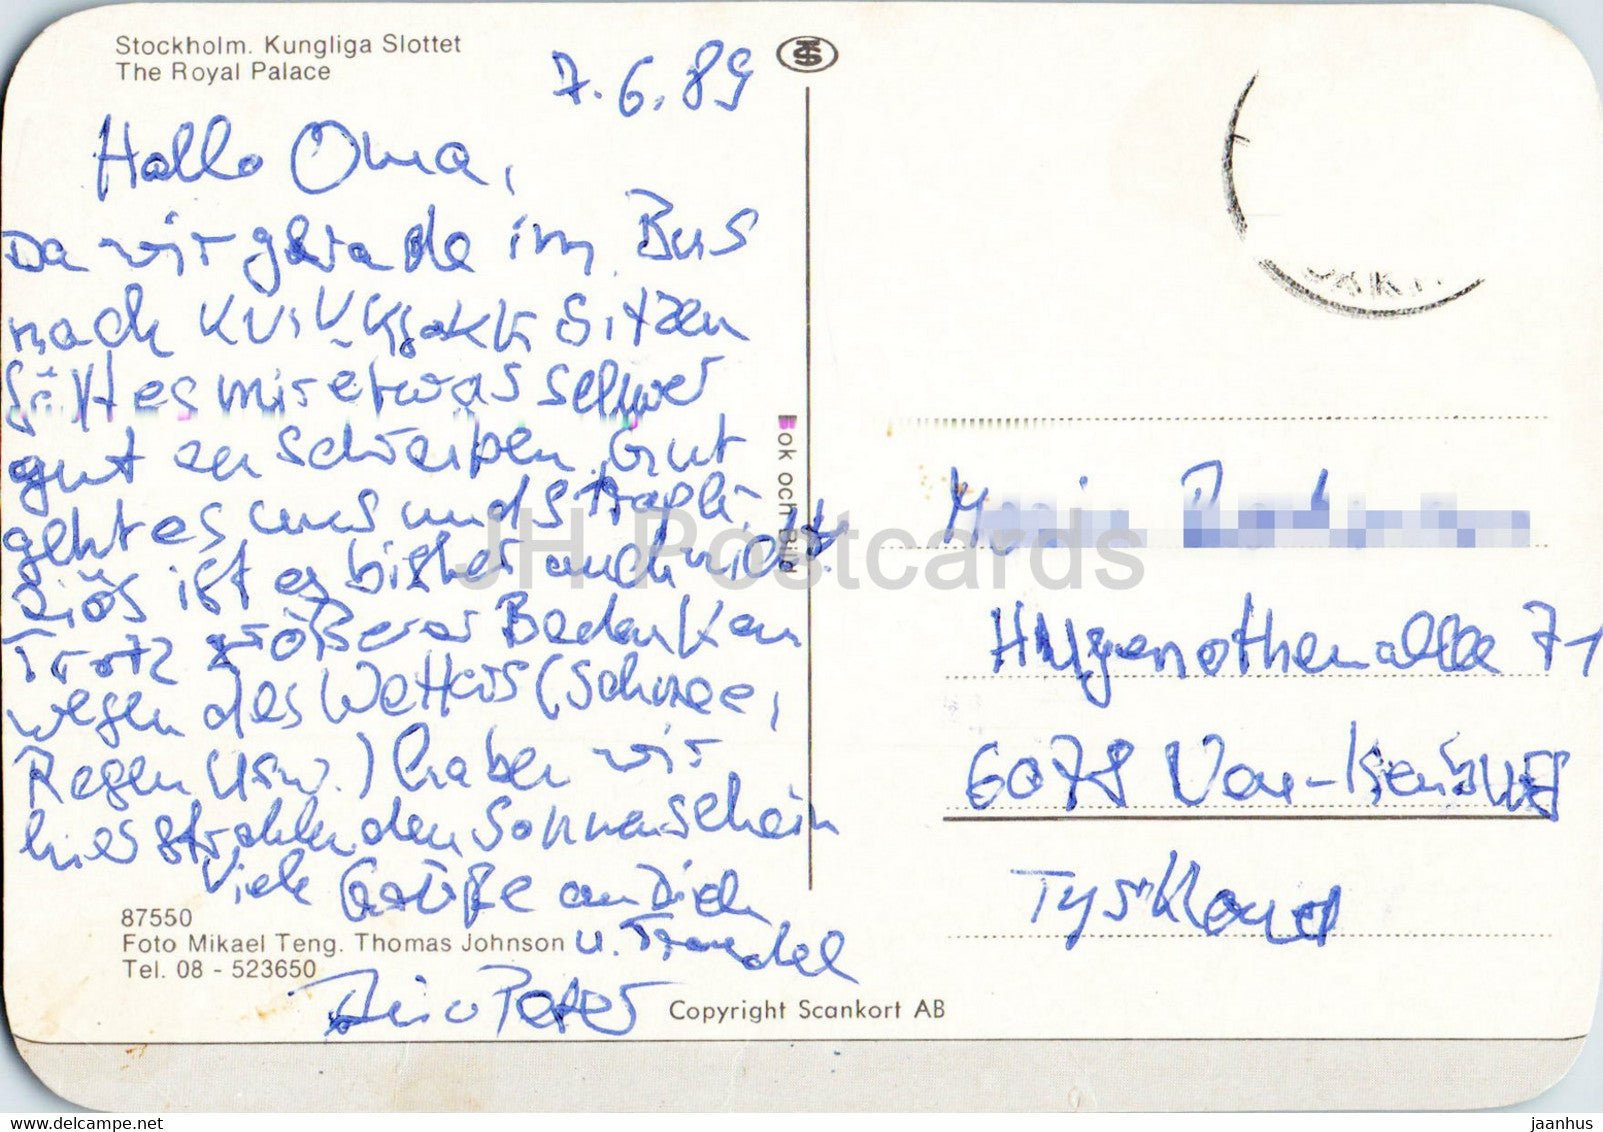 Stockholm. Kungliga Slottet
The Royal Palace
7.6.89
Hallo Oma,
Da wir gerade im Bus
nach Kvikkjokk sitzen
fällt es mir etwas schwer
gut zu schreiben. Gut
geht es uns und strapa-
ziös ist es bisher auch nicht.
Trotz größerer Bedenken
wegen des Wetters (Schnee,
Regen usw.) haben wir
hier strahlenden Sonnenschein
Viele Grüße an Dich
u. Traudel
Dein Peter
87550
Foto Mikael Teng. Thomas Johnson
Tel. 08 - 523650
Copyright Scankort AB
ok och Bild
Hugenottenallee 71
6078 Neu-Isenburg
Tyskland
JH Postcards
https://jhpostcards.com
jaanhus